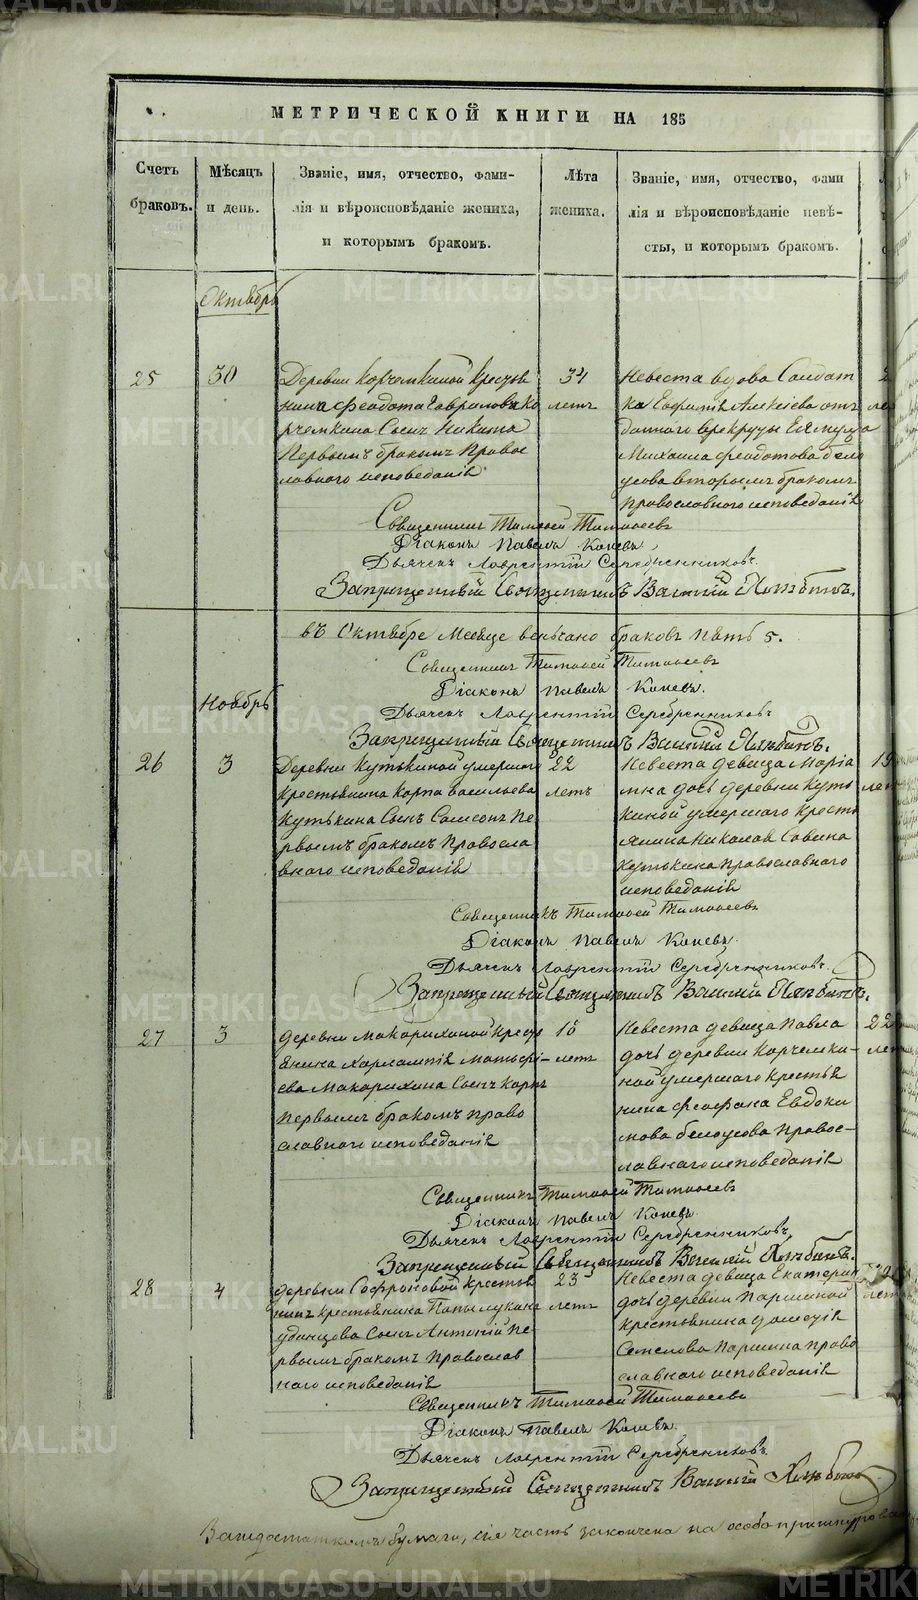 МЕТРИЧЕСКОЙ КНИГИ НА 185
Счетъ браковъ.
Мѣсяцъ и день.
Званіе, имя, отчество, фами-
лія и вѣроисповѣданіе жениха,
и которымъ бракомъ.
Лѣта
жениха.
Званіе, имя, отчество, фами
лія и вѣроисповѣданіе невѣ-
сты, и которымъ бракомъ.
Октябрь
25
30
Деревни Корчемкиной Крестья
нина Феодота Гаврилова Ко
рчемкина Сынъ Никита
Первымъ бракомъ Право
славнаго исповеданія
34
летъ
Невеста вдова Солдат
ка Евфимія Алексеева отъ
даннаго врекруты
Михаила Феодотова бело
усова вторымъ бракомъ
православнаго исповеданія
Священникъ Тимофей Тимофеевъ
Діаконъ Павелъ Коневъ
Дьячекъ Лаврентій Серебренниковъ
Запрещенный Священникъ Василій Хлѣбинъ.
въ Октябре Месяце венчано браковъ пять 5.
Священникъ Тимофей Тимофеевъ
Діаконъ Павелъ Коневъ.
Ноябрь
Дьячекъ Лаврентій Серебренниковъ
Запрещенный Священникъ Василій Хлѣбинъ.
26
3
Деревни Кутькиной умершаго
крестьянина Карпа Васильева
Кутькина Сынъ Самсонъ Пе
рвымъ бракомъ Правосла
внаго исповеданія
22
летъ
Невеста девица Маріа
мна дочь деревни Куть
киной умершаго кресть
янина Николая Савина
Кутькина православнаго
исповеданія
19
лет
Священникъ Тимофей Тимофеевъ
Діаконъ Павелъ Коневъ.
Дьячекъ Лаврентій Серебренниковъ.
Запрещенный Священникъ Василій Хлѣбинъ.
27
3
деревни Макарихиной крестья
янина Харлампія Матьфі-
ева Макарихина Сынъ Карпъ
Первымъ бракомъ право
славнаго исповеданія
18
летъ
Невеста девица Павла
дочь деревни Корчемки-
ной умершаго крестья
нина Феофана Евдоки
мова белоусова Правос-
лавнаго исповеданія
22
лет
Священникъ Тимофей Тимофеевъ
Діаконъ Павелъ Коневъ.
Дьячекъ Лаврентій Серебренниковъ
Запрещенный Священникъ Василій Хлѣбинъ.
28
4
деревни Софроновой крестья
нинъ крестьянина
Сынъ Антоній Пе-
рвымъ бракомъ Православ
наго исповеданія
23
летъ
Невеста девица Екатерина
дочь деревни Паршиной
крестьянина
Паршина право
славнаго исповеданія
Священникъ Тимофей Тимофеевъ
Діаконъ Павелъ Коневъ.
Дьячекъ Лаврентій Серебренниковъ
Запрещенный Священникъ Василій Хлѣбинъ
Занедостаткомъ бумаги, сія часть закончена на особо
METRIKI.GASO-URAL.RU